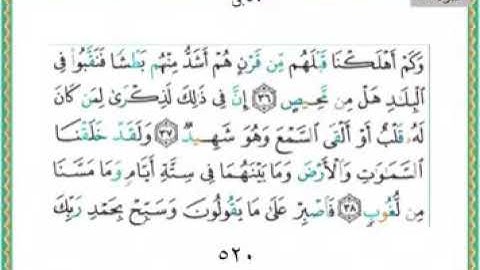 وَكَمْ أَهْلَكْنَا قَبْلَهُم مِّن قَرْنٍ هُمْ أَشَدُّ مِنْهُم بَطْشًا فَنَقَّبُوا۟ فِى
ٱلْبِلَٰدِ هَلْ مِن مَّحِيصٍ ٣٦ إِنَّ فِى ذَٰلِكَ لَذِكْرَىٰ لِمَن كَانَ
لَهُۥ قَلْبٌ أَوْ أَلْقَى ٱلسَّمْعَ وَهُوَ شَهِيدٌ ٣٧ وَلَقَدْ خَلَقْنَا
ٱلسَّمَٰوَٰتِ وَٱلْأَرْضَ وَمَا بَيْنَهُمَا فِى سِتَّةِ أَيَّامٍ وَمَا مَسَّنَا
مِن لُّغُوبٍ ٣٨ فَٱصْبِرْ عَلَىٰ مَا يَقُولُونَ وَسَبِّحْ بِحَمْدِ رَبِّكَ
٥٢٠